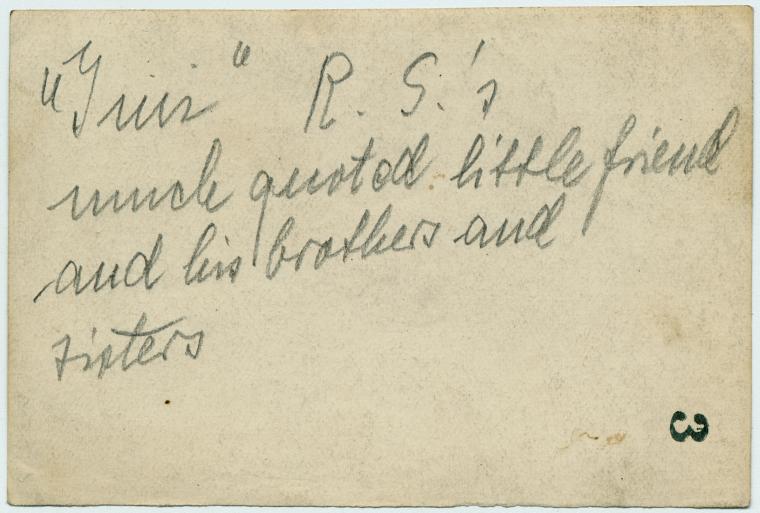 " " R. S.'s
much quoted little friend
and his brothers and
sisters
3